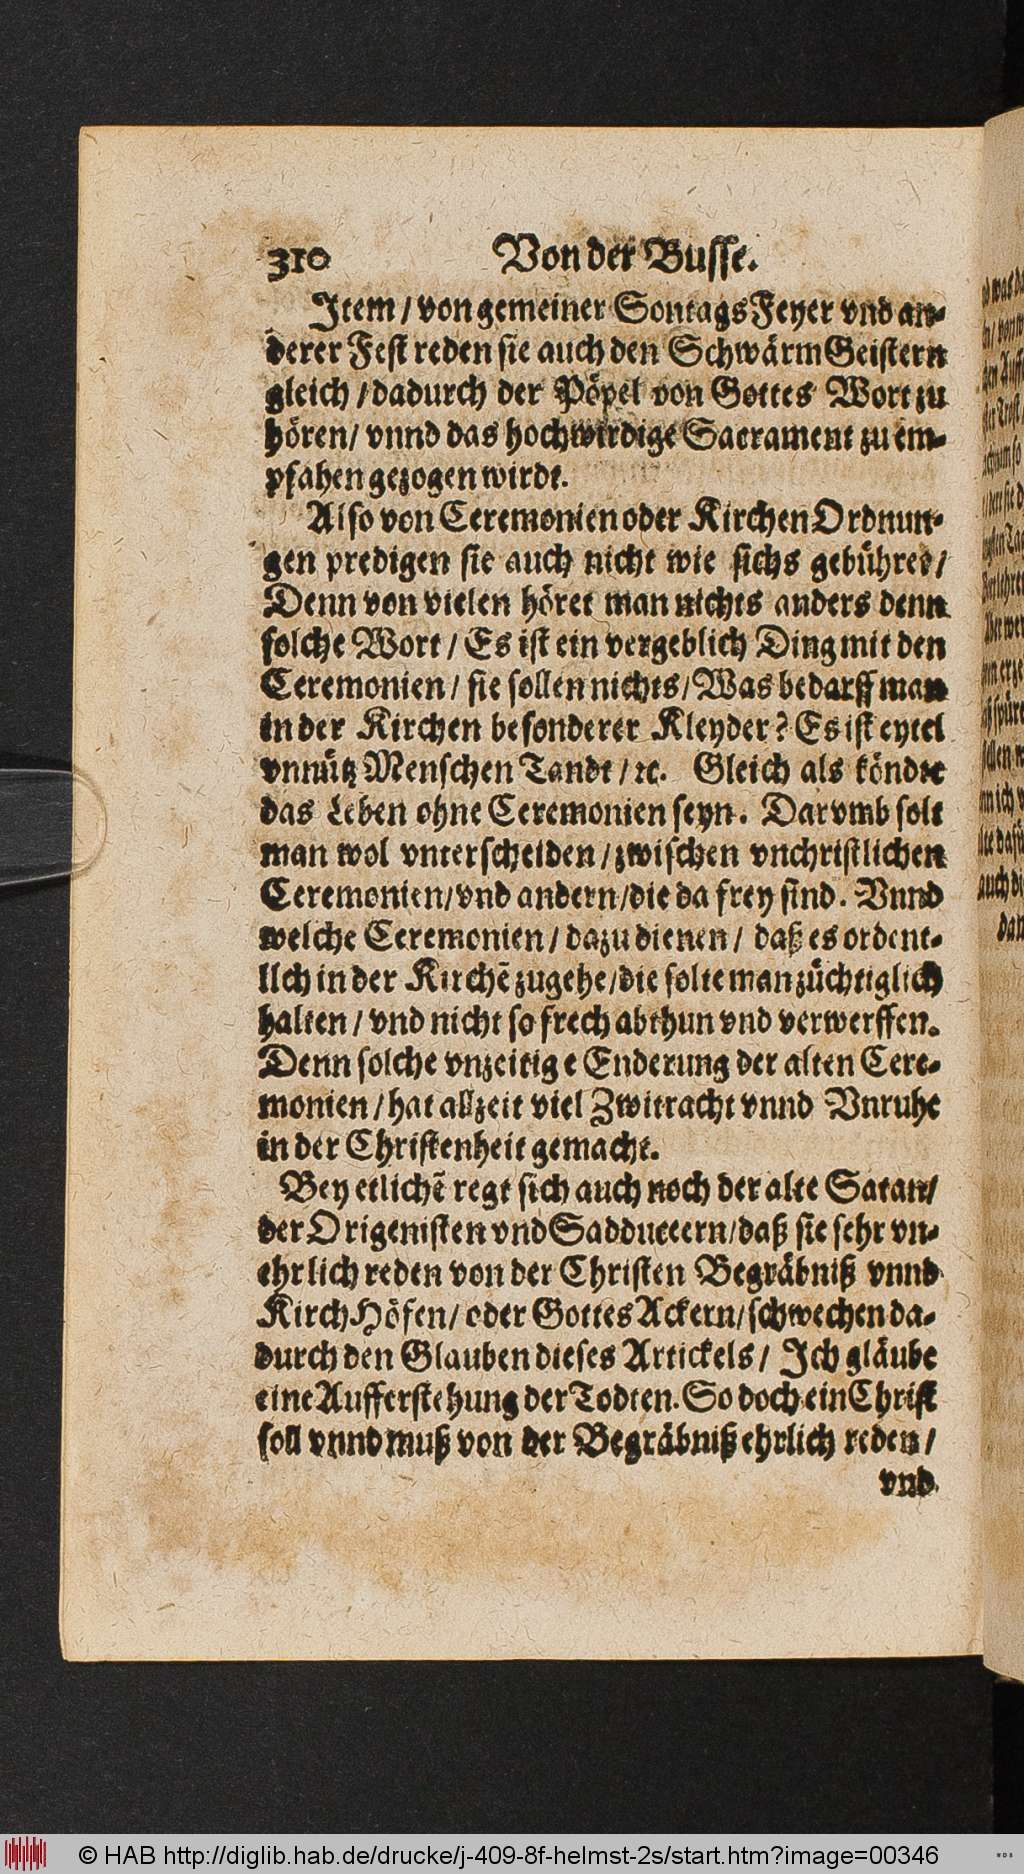 310 Von der Busse.
Item / von gemeiner Sontags Feyer vnd an-
derer Fest reden sie auch den SchwärmGeistern
gleich / dadurch der Pöpel von Gottes Wort zu
hören / vnnd das hochwirdige Sacrament zu em-
pfahen gezogen wirdt.
Also von Ceremonien oder Kirchen Ordnun-
gen predigen sie auch nicht wie sichs gebühret /
Denn von vielen höret man nichts anders denn
solche Wort / Es ist ein vergeblich Ding mit den
Ceremonien / sie sollen nichts / Was bedarff man
in der Kirchen besonderer Kleyder? Es ist eytel
vnnütz Menschen Tandt / ꝛc. Gleich als köndte
das Leben ohne Ceremonien seyn. Darvmb solt
man wol vnterscheiden / zwischen vnchristlichen
Ceremonien / vnd andern / die da frey sind. Vnnd
welche Ceremonien / dazu dienen / daß es ordent-
lich in der Kirchẽ zugehe / die solte man züchtiglich
halten / vnd nicht so frech abthun vnd verwerffen.
Denn solche vnzeitige Enderung der alten Cere-
monien / hat allzeit viel Zwitracht vnnd Vnruhe
in der Christenheit gemacht.
Bey etlichẽ regt sich auch noch der alte Satan /
der Origenisten vnd Sadduceern / daß sie sehr vn-
ehrlich reden von der Christen Begräbniß vnnd
KirchHöfen / oder GottesAckern / schwechen da-
durch den Glauben dieses Artickels / Ich gläube
eine Aufferstehung der Todten. So doch ein Christ
soll vnnd muß von der Begräbniß ehrlich reden /
vnd
© HAB http://diglib.hab.de/drucke/j-409-8f-helmst-2s/start.htm?image=00346